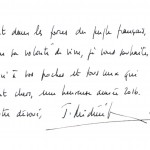 t dans la force du peuple français,
sa volonté de vivre, je vous souhaite,
à vos proches et tous ceux qui
sont chers, une heureuse année 2016.
dévoué,